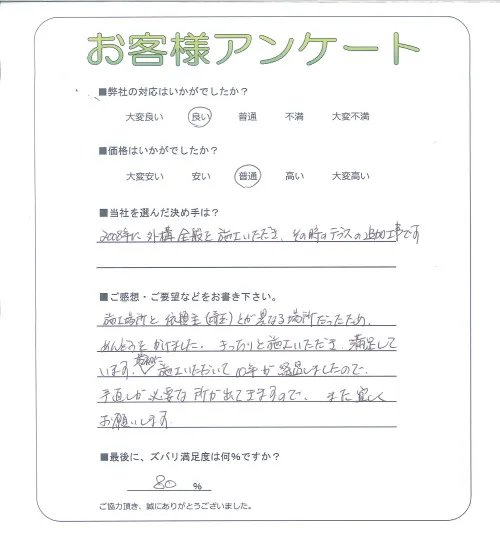 お客様アンケート
■弊社の対応はいかがでしたか？
大変良い 良い 普通 不満 大変不満
■価格はいかがでしたか？
大変安い 安い 普通 高い 大変高い
■当社を選んだ決め手は？
2008年に外構全般を施工いただき、その時のテラスの追加工事です
■ご感想・ご要望などをお書き下さい。
施工場所と依頼主(埼玉)とが異なる場所だったため、
めんどうをかけました。きっちりと施工いただき、満足して
います。最初に施工いただいて10年が経過しましたので、
手直しが必要な所が出てきますので、また宜しく
お願いします
■最後に、ズバリ満足度は何%ですか？
80 %
ご協力頂き、誠にありがとうございました。